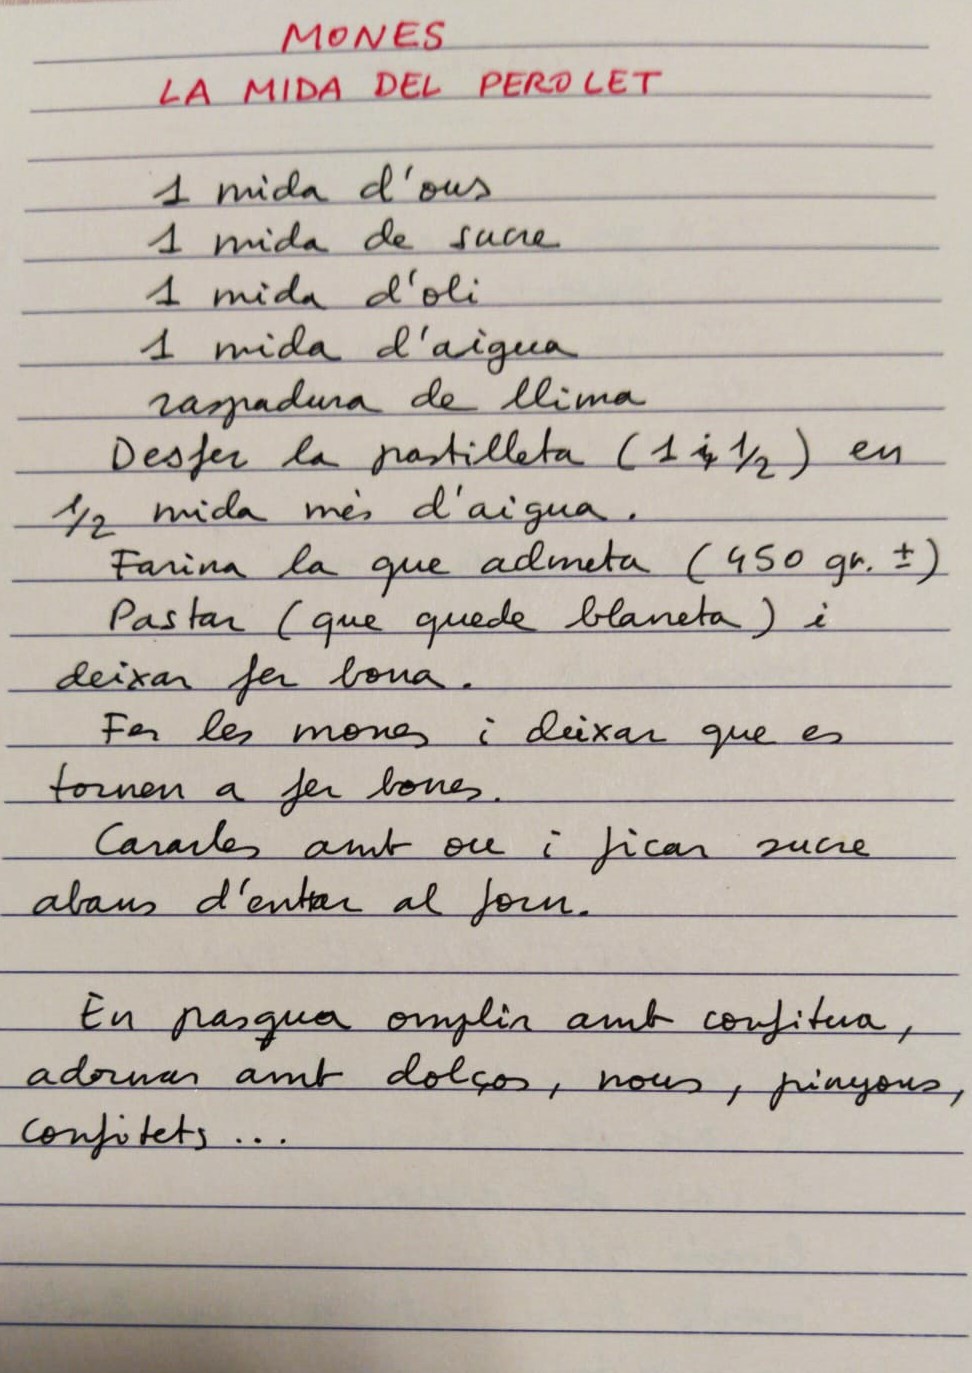 MONES
LA MIDA DEL PEROLET
1 mida d'ous
1 mida de sucre
1 mida d'oli
1 mida d'aigua
raspadura de llima
Desfer la pastilleta (1 i 1/2) en
1/2 mida més d'aigua.
Farina la que admeta (450 gr. ±)
Pastar (que quede blaneta) i
deixar fer bona.
Fer les mones i deixar que es
tornen a fer bones.
Cararles amb ou i ficar sucre
abans d'entrar al forn.
En pasqua omplir amb confitura,
adornar amb dolços, nous, pinyons,
confitets ...